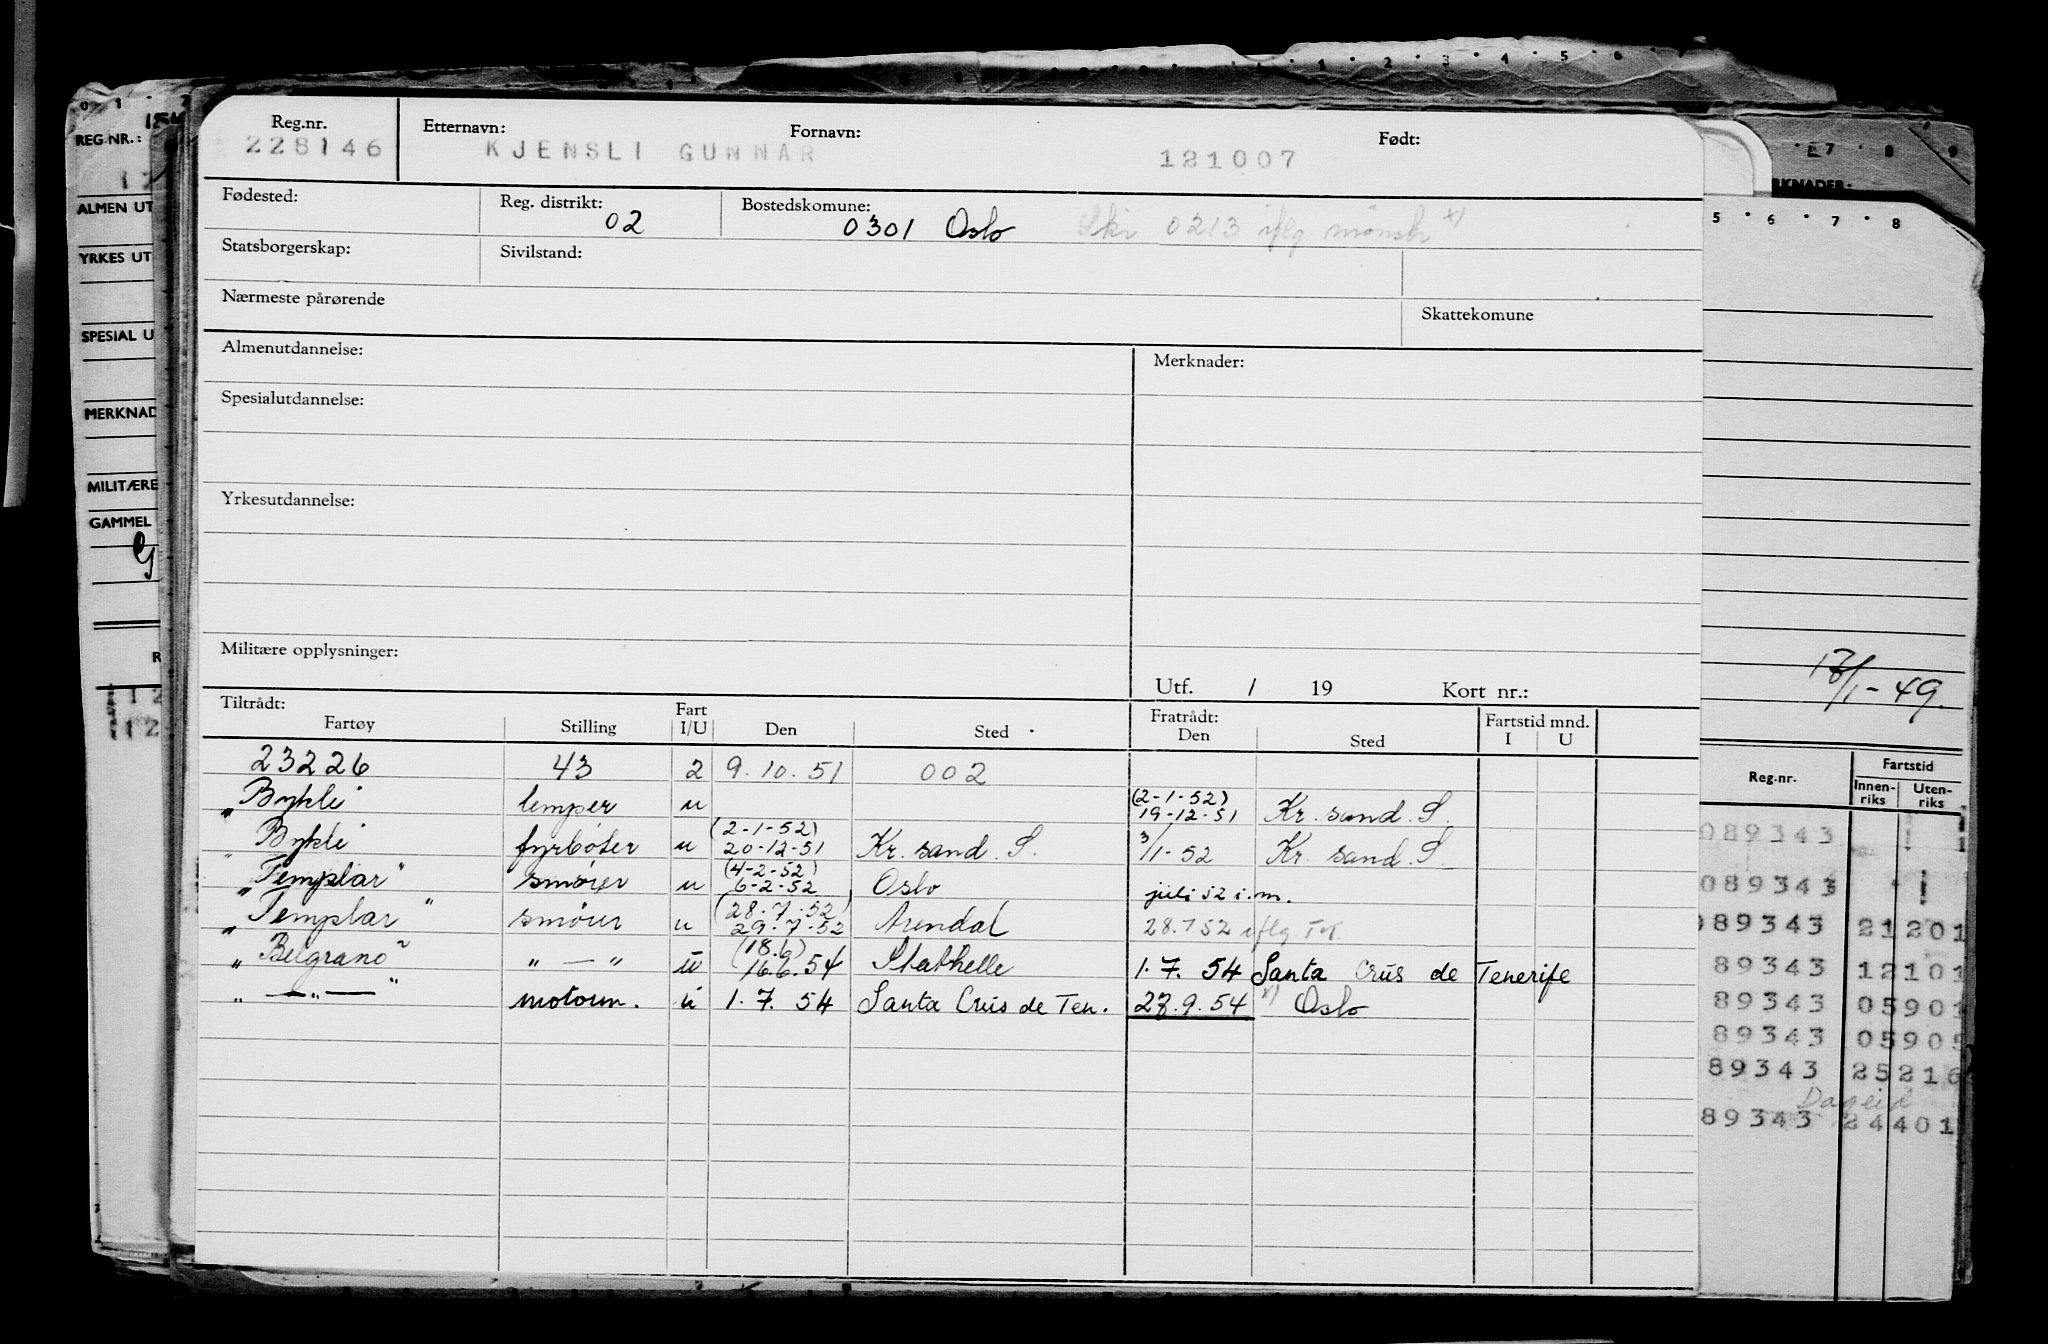 Reg.nr. Etternavn: Fornavn: Født:
228146 KJENSLI GUNNAR 121007
Fødested: Reg. distrikt: 02 Bostedskomune: 0301 Oslo Ski 0213 iflg mønstr x)
Statsborgerskap: Sivilstand:
Nærmeste pårørende Skattekomune
Almenutdannelse: Merknader:
Spesialutdannelse:
Yrkesutdannelse:
Militære opplysninger:
Utf. / 19 Kort nr.:
Tiltrådt: Fratrådt: Fartstid mnd.
Fartøy Stilling Fart I/U Den Sted Den Sted I U
23226 43 2 9.10.51 002
"Bykle lemper u (2-1-52) 19-12-51 Kr. sand. S.
Bykle fyrbøter u (2-1-52) 20-12-51 Kr. sand. S. 3/1-52 Kr. sand. S.
"Templar" smører u (4-2-52) 6-2-52 Oslo juli 52 i.m.
"Templar" smører u (28.7.52) 29.7.52 Arendal 28.7.52 iflg
"Belgrano" " — " u (18.6) 16.6.54 Stathelle 1.7.54 Santa Crus de Tenerife
" — " — " motorm. u 1.7.54 Santa Crus de Ten. 28.9.54 x) Oslo
0 1 2
REG.NR.:
ALMEN UT
YRKES UT
SPESIAL U
MERKNAD
MILITÆRE
GAMMEL
1 2 3 4 5 6
7 8 9
RKNADER:
5 6 7 8
18/1-49.
Reg.nr. Fartstid
Innen-riks Uten-riks
089343
089343
089343 21201
89343 12101
89343 05901
89343 05905
89343 25216
89343 24401